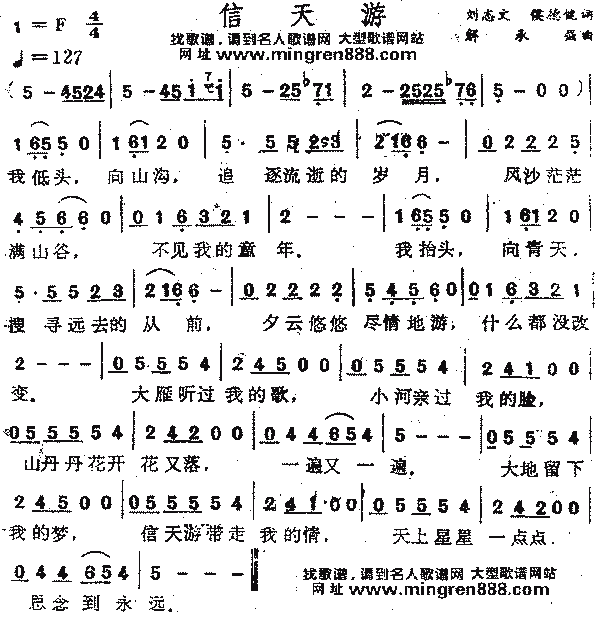 信天游
1=F 4/4
♩=127
刘志文 侯德健词
解承强曲
找歌谱，请到名人歌谱网 大型歌谱网站
网址 www.mingren888.com
(5-4524|5-451 1|5-25♭71|2-2525♭76|5-00)|
16550|16120|5·5523|2166-|022225|
我低头，向山沟，追逐流逝的岁月，风沙茫茫
45660|0163221|2---|165550|16120|
满山谷，不见我的童年。我抬头，向青天，
5·5523|2166-|02222|545660|0163221|
搜寻远去的从前，夕云悠悠尽情地游，什么都没改
2---|055554|24500|055554|24100|
变。大雁听过我的歌，小河亲过我的脸，
055554|24200|044654|5---|055554|
山丹丹花开花又落，一遍又一遍。大地留下
24500|055554|24100|055554|24200|
我的梦，信天游带走我的情，天上星星一点点，
044654|5---‖
思念到永远。
找歌谱，请到名人歌谱网 大型歌谱网站
网址 www.mingren888.com